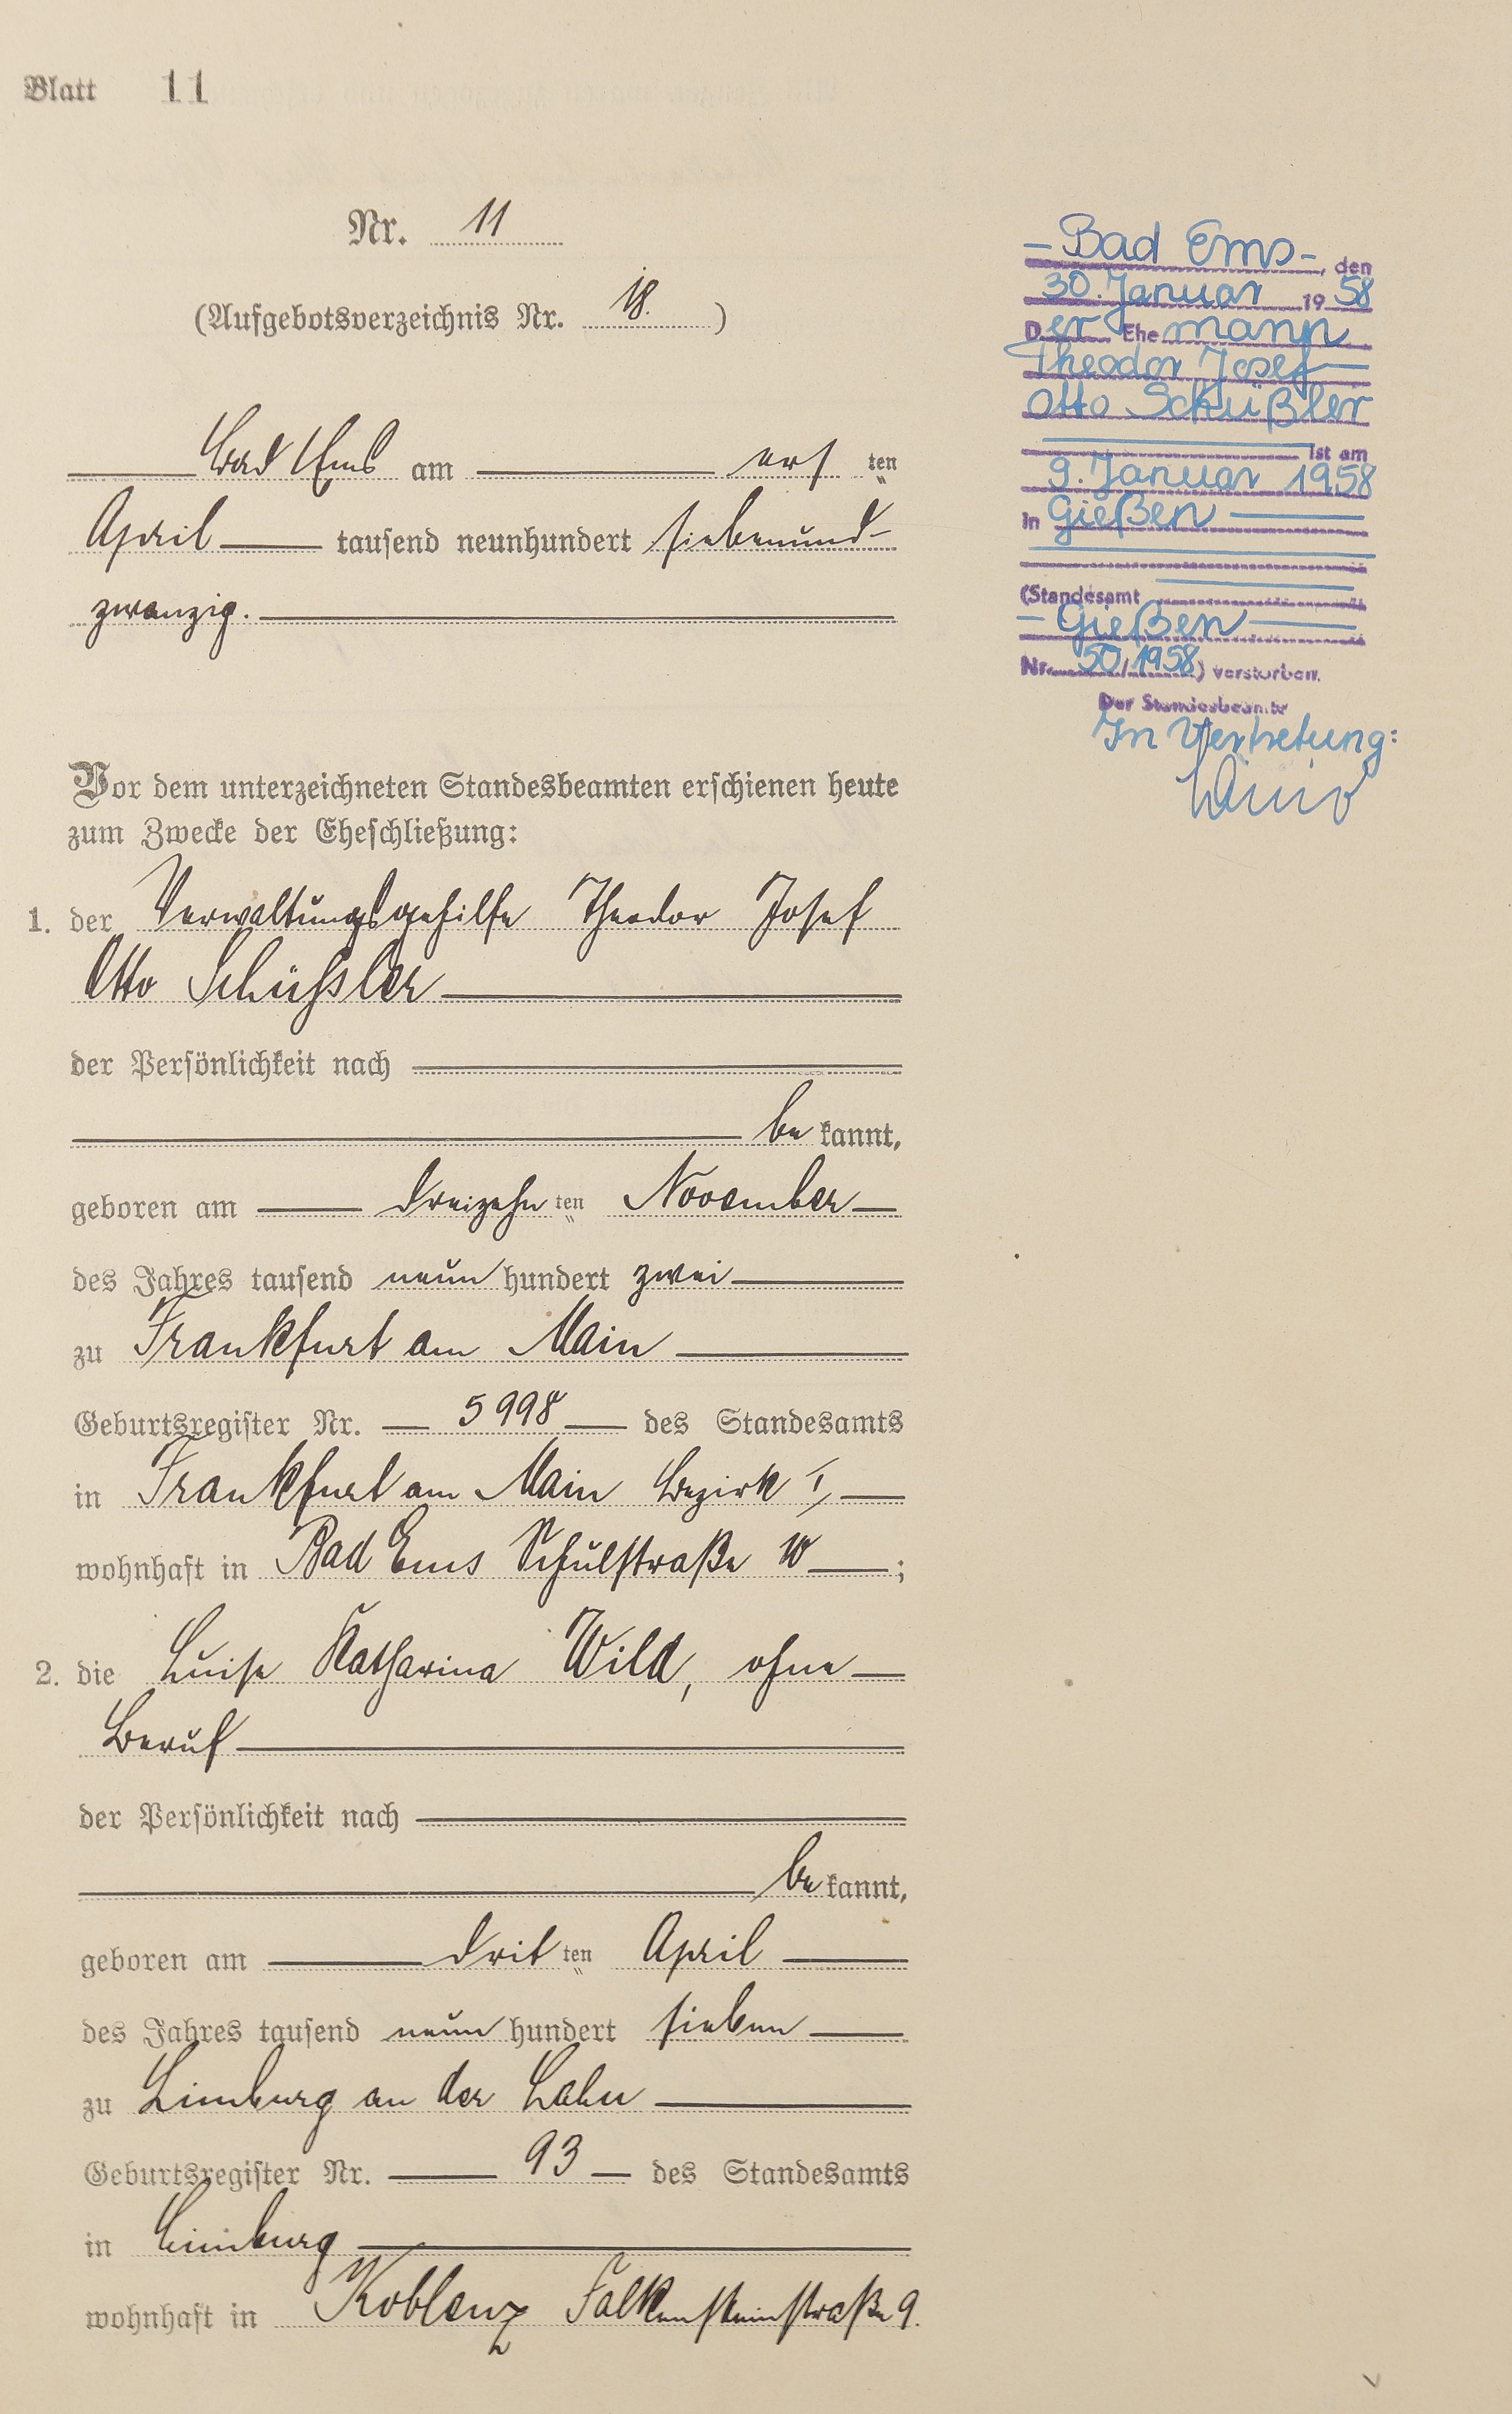 Blatt 11
Nr. 11
(Aufgebotsverzeichnis Nr. 18.)
Bad Ems am ersten
April tausend neunhundert siebenund-
zwanzig.
Vor dem unterzeichneten Standesbeamten erschienen heute
zum Zwecke der Eheschließung:
1. der Verwaltungsgehilfe Theodor Josef
Otto Schüßler
der Persönlichkeit nach
bekannt,
geboren am dreizehnten November
des Jahres tausend neunhundert zwei
zu Frankfurt am Main
Geburtsregister Nr. 5998 des Standesamts
in Frankfurt am Main Bezirk I,
wohnhaft in Bad Ems Schulstraße 10;
2. die Luise Katharina Wild, ohne
Beruf
der Persönlichkeit nach
bekannt,
geboren am dritten April
des Jahres tausend neunhundert sieben
zu Limburg an der Lahn
Geburtsregister Nr. 93 des Standesamts
in Limburg
wohnhaft in Koblenz Falkensteinstraße 9.
Bad Ems, den
30. Januar 1958
Der Ehemann
Theodor Josef
Otto Schüßler
ist am
9. Januar 1958
in Gießen
(Standesamt
Gießen
Nr. 50/1958) verstorben.
Der Standesbeamte
In Vertretung: